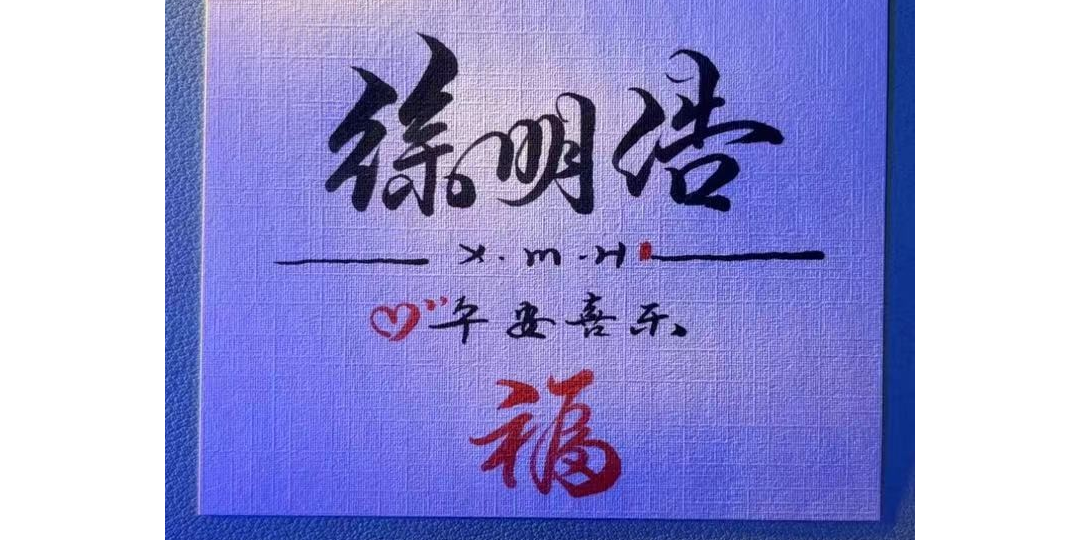 徐明浩
X.M.H
平安喜乐
福